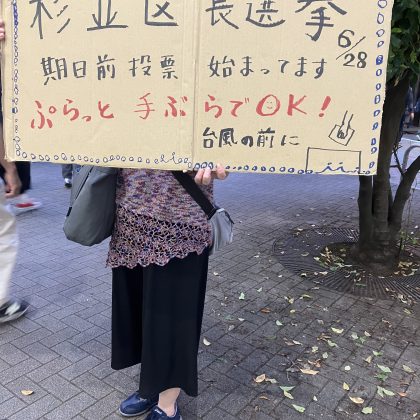 杉並区長選挙 6/28
期日前投票 始まってます
ぷらっと 手ぶらでOK!
台風の前に